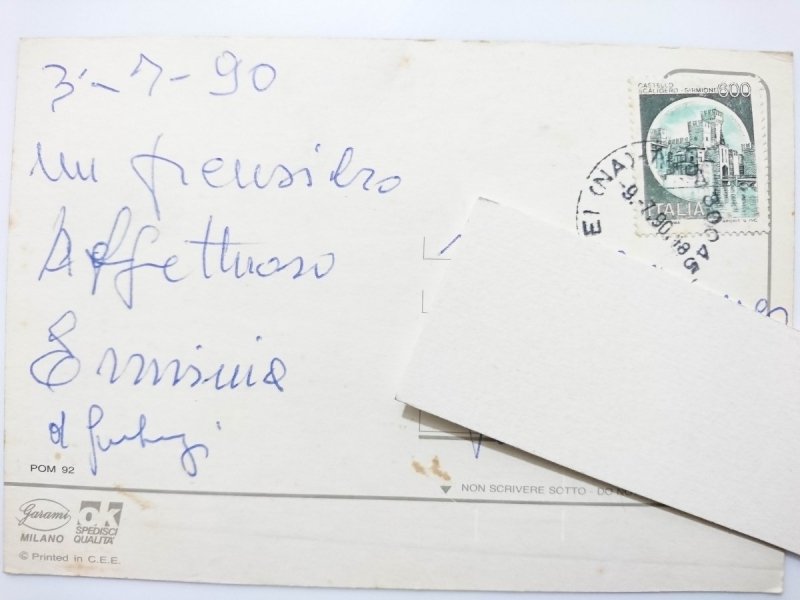 3-7-90
un pensiero
Affettuoso
Erminia
CASTELLO
SCALIGERO - SIRMIONE 600
ITALIA
EI (NA)
-9.-7.90.18
POM 92
NON SCRIVERE SOTTO - DO NO
Garami
MILANO
ok
SPEDISCI
QUALITÀ
© Printed in C.E.E.